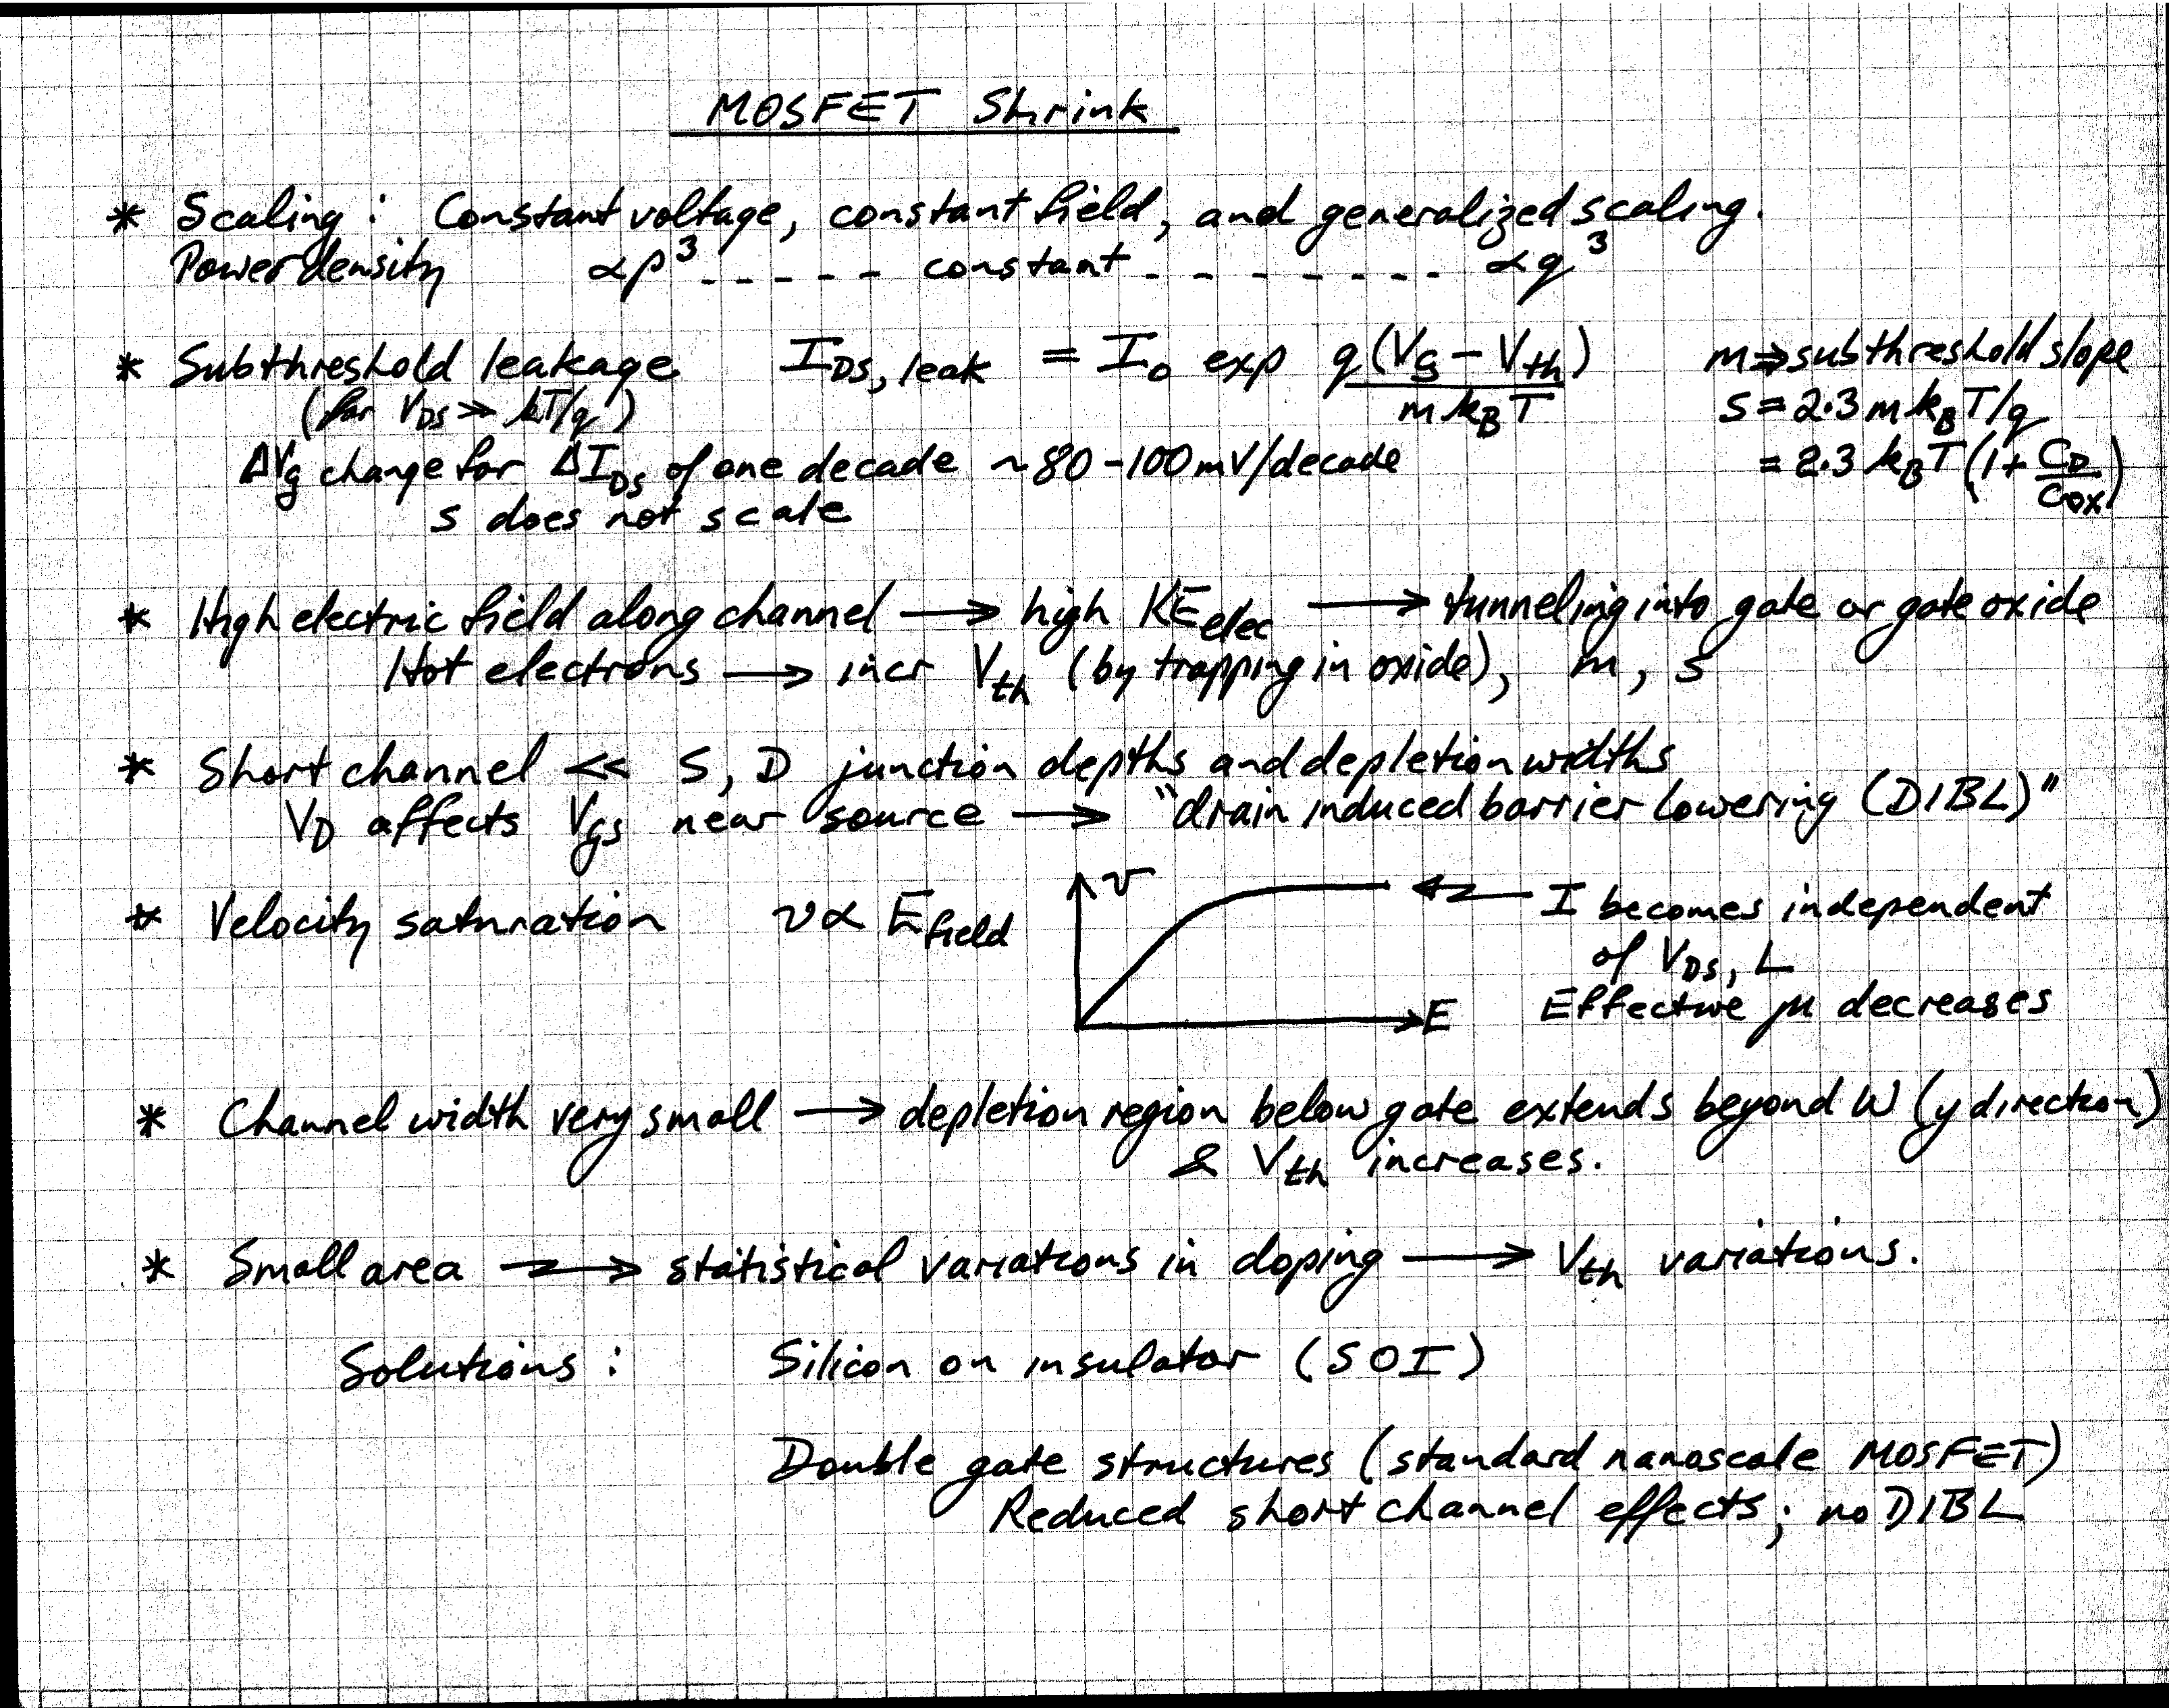 MOSFET Shrink
* Scaling: Constant voltage, constant field, and generalized scaling.
Power density ∝p³ ----- constant -------- ∝q³
* Subthreshold leakage I_DS, leak = I_0 exp q(V_G - V_th) / m k_B T m ⇒ subthreshold slope
(for V_DS >> kT/q) S = 2.3 m k_B T/q
ΔV_g change for ΔI_DS of one decade ~80-100mV/decade = 2.3 k_B T (1 + C_D/C_ox)
S does not scale
* High electric field along channel → high KE_elec → tunneling into gate or gate oxide
Hot electrons → incr V_th (by trapping in oxide), m, S
* Short channel << S, D junction depths and depletion widths
V_D affects V_gs near source → "drain induced barrier lowering (DIBL)"
* Velocity saturation v ∝ E_field v ← I becomes independent
of V_DS, L
E Effective μ decreases
* Channel width very small → depletion region below gate extends beyond W (y direction)
& V_th increases.
* Small area → statistical variations in doping → V_th variations.
Solutions: Silicon on insulator (SOI)
Double gate structures (standard nanoscale MOSFET)
Reduced short channel effects; no DIBL